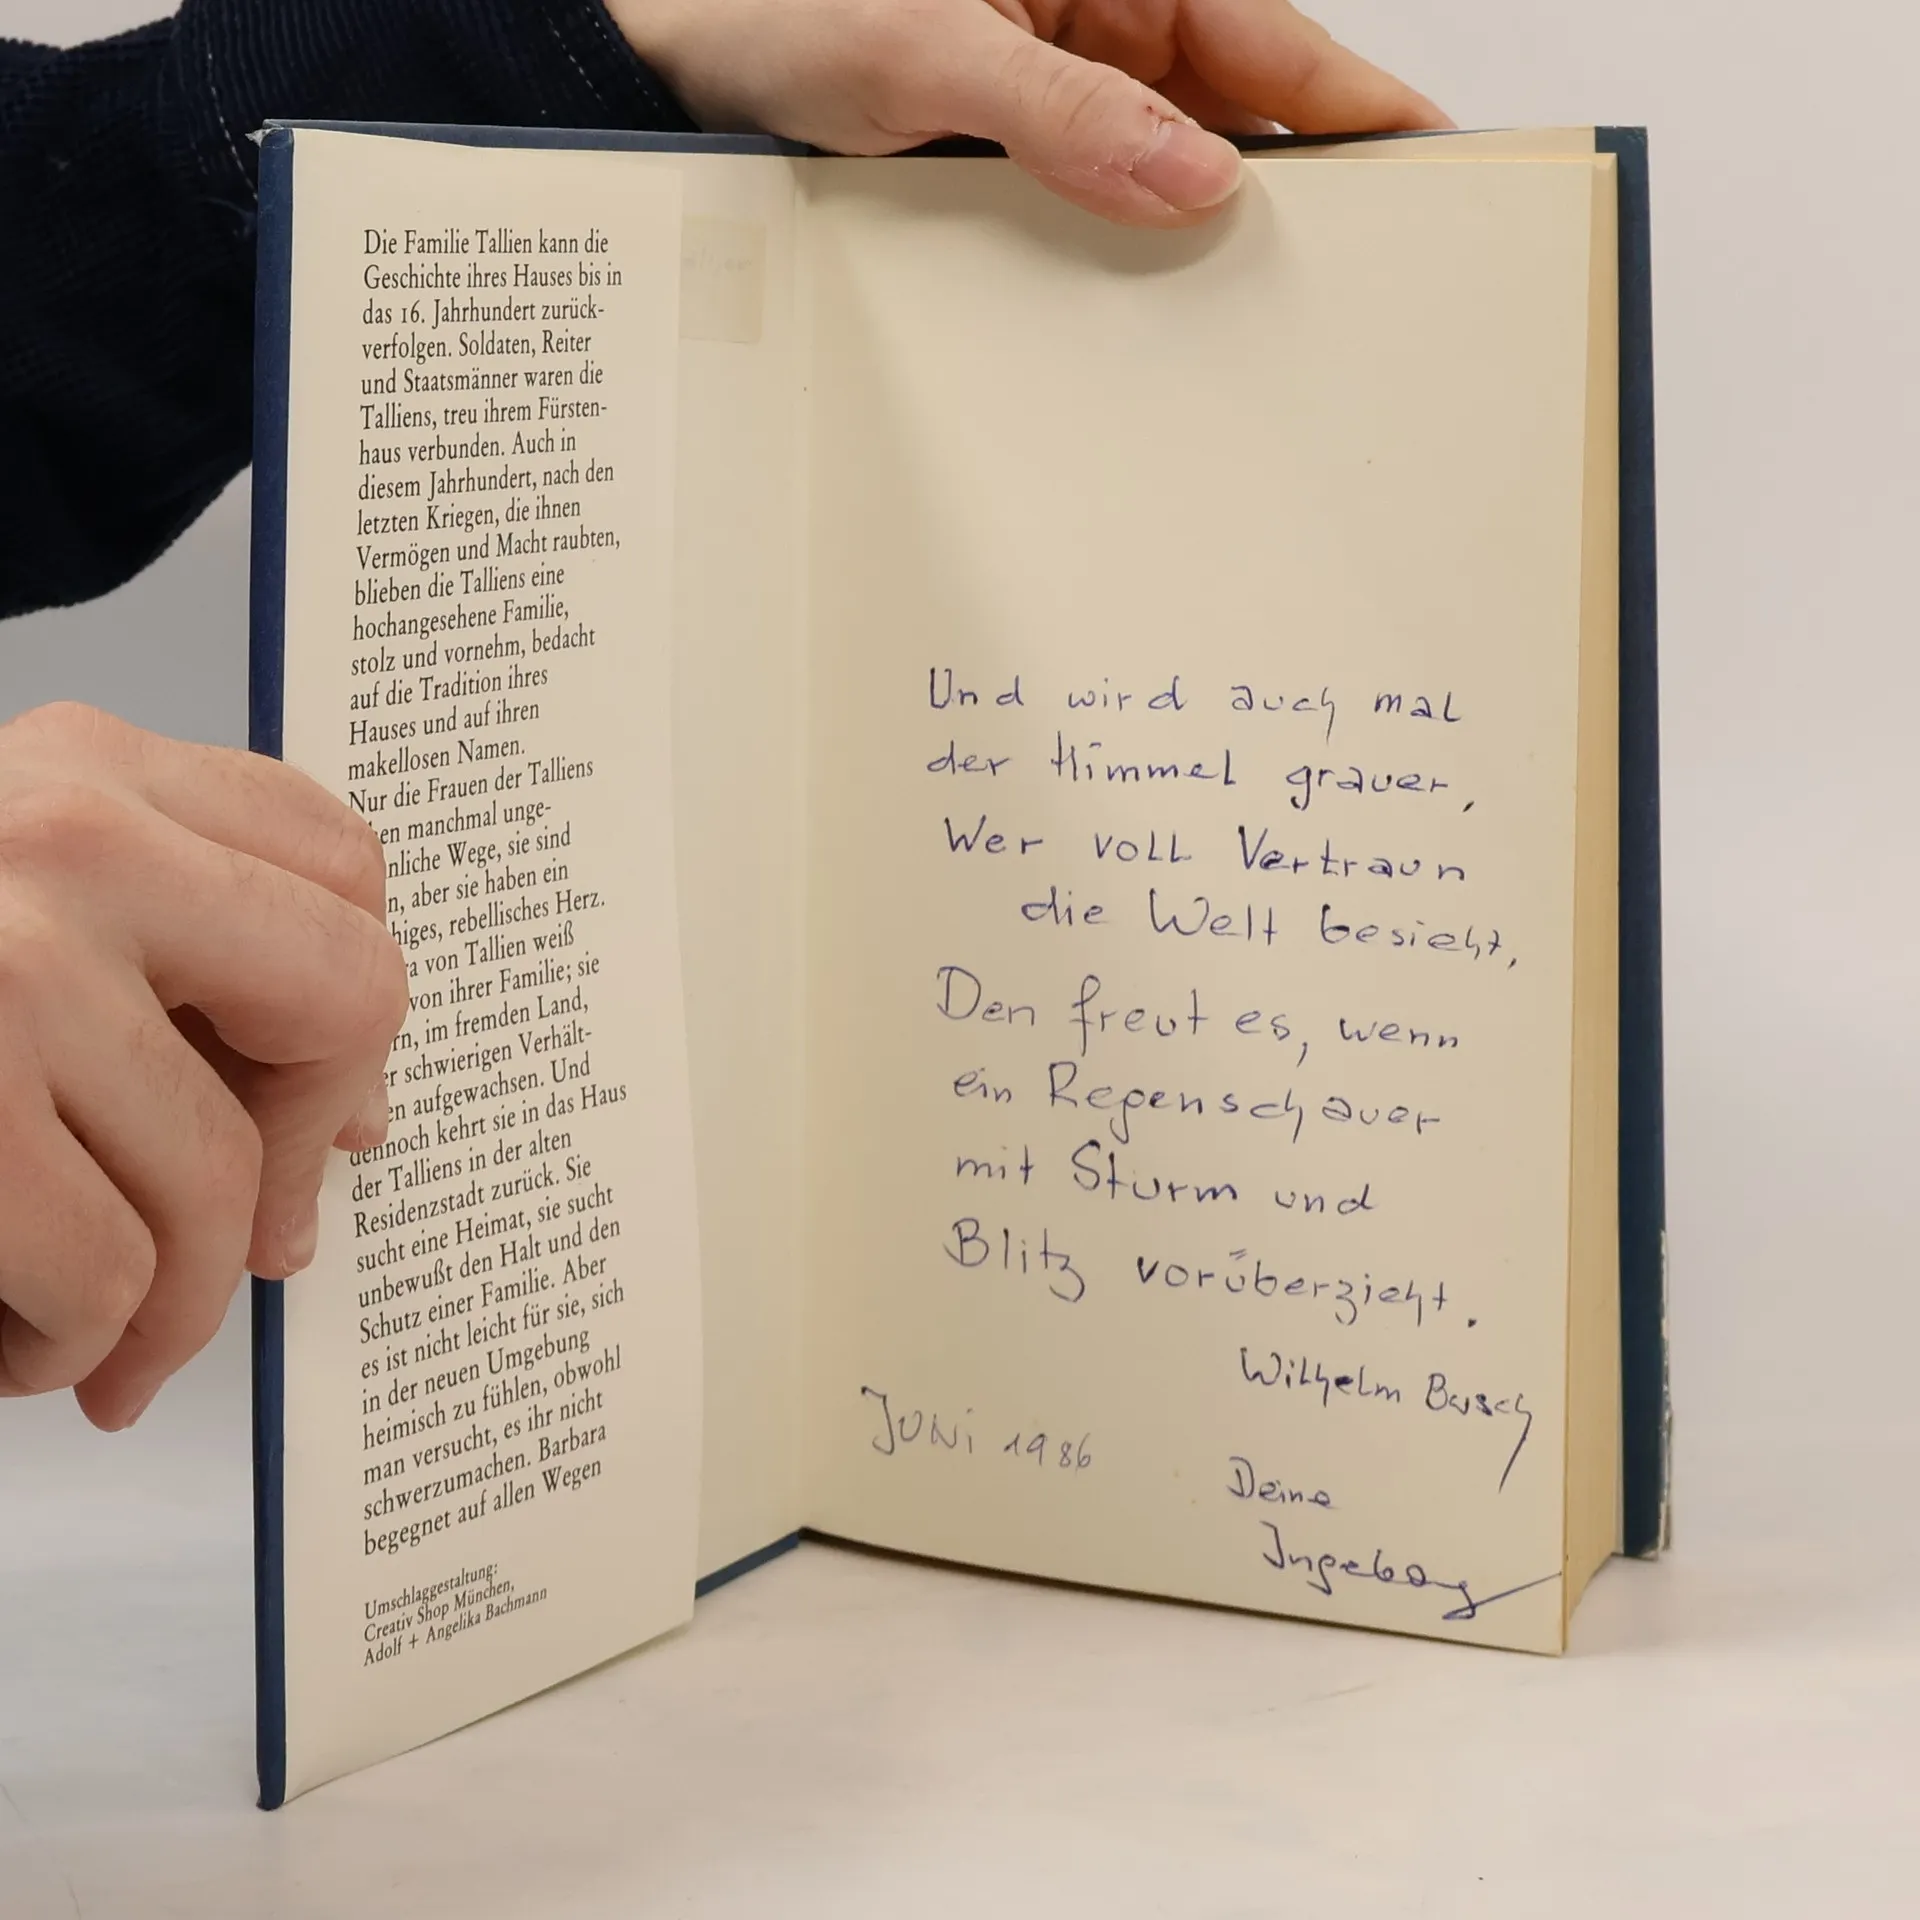 Die Familie Tallien kann die
Geschichte ihres Hauses bis in
das 16. Jahrhundert zurück-
verfolgen. Soldaten, Reiter
und Staatsmänner waren die
Talliens, treu ihrem Fürsten-
haus verbunden. Auch in
diesem Jahrhundert, nach den
letzten Kriegen, die ihnen
Vermögen und Macht raubten,
blieben die Talliens eine
hochangesehene Familie,
stolz und vornehm, bedacht
auf die Tradition ihres
Hauses und auf ihren
makellosen Namen.
Nur die Frauen der Talliens
en manchmal unge-
nliche Wege, sie sind
n, aber sie haben ein
higes, rebellisches Herz.
a von Tallien weiß
von ihrer Familie; sie
rn, im fremden Land,
er schwierigen Verhält-
en aufgewachsen. Und
dennoch kehrt sie in das Haus
der Talliens in der alten
Residenzstadt zurück. Sie
sucht eine Heimat, sie sucht
unbewußt den Halt und den
Schutz einer Familie. Aber
es ist nicht leicht für sie, sich
in der neuen Umgebung
heimisch zu fühlen, obwohl
man versucht, es ihr nicht
schwerzumachen. Barbara
begegnet auf allen Wegen
Umschlaggestaltung:
Creativ Shop München,
Adolf + Angelika Bachmann
Und wird auch mal
der Himmel grauer,
Wer voll Vertraun
die Welt besieht,
Den freut es, wenn
ein Regenschauer
mit Sturm und
Blitz vorüberzieht.
Wilhelm Busch
Juni 1986
Deine
Ingeborg